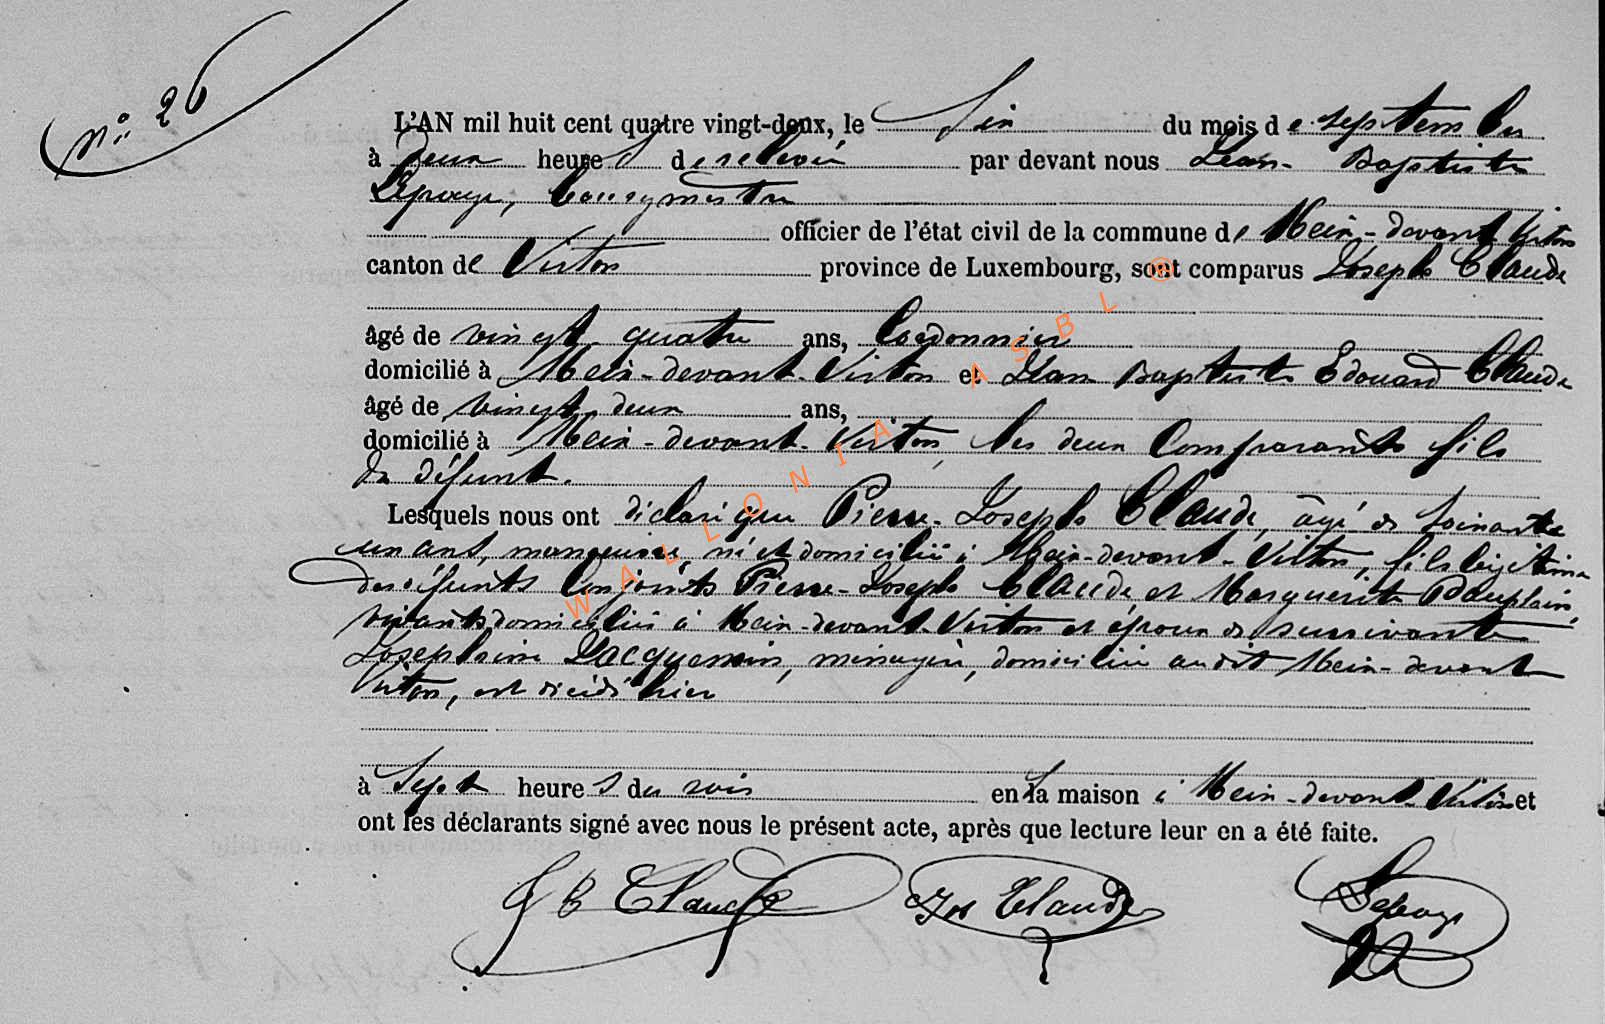 N° 26
L'AN mil huit cent quatre vingt-deux, le six du mois de septembre
à deux heures de relevée par devant nous Jean-Baptiste
Lepage, bourgmestre
officier de l'état civil de la commune de Meix-devant-Virton
canton de Virton province de Luxembourg, sont comparus Joseph Claude
âgé de vingt-quatre ans, Cordonnier
domicilié à Meix-devant-Virton et Jean Baptiste Edouard Claude
âgé de vingt-deux ans,
domicilié à Meix-devant-Virton, les deux Comparants fils
du défunt.
Lesquels nous ont déclaré que Pierre-Joseph Claude, âgé de soixante
un ans, né et domicilié à Meix-devant-Virton, fils légitime
des défunts Conjoints Pierre-Joseph Claude et Marguerite
vivants domiciliés à Meix-devant-Virton et époux de survivante
Josephine Jacquemin, ménagère, domiciliée audit Meix-devant
Virton, est décédé hier
à sept heures du soir en la maison à Meix-devant-Virton et
ont les déclarants signé avec nous le présent acte, après que lecture leur en a été faite.
J B Claude Jos Claude Lepage
WALLONIA ASBL ®